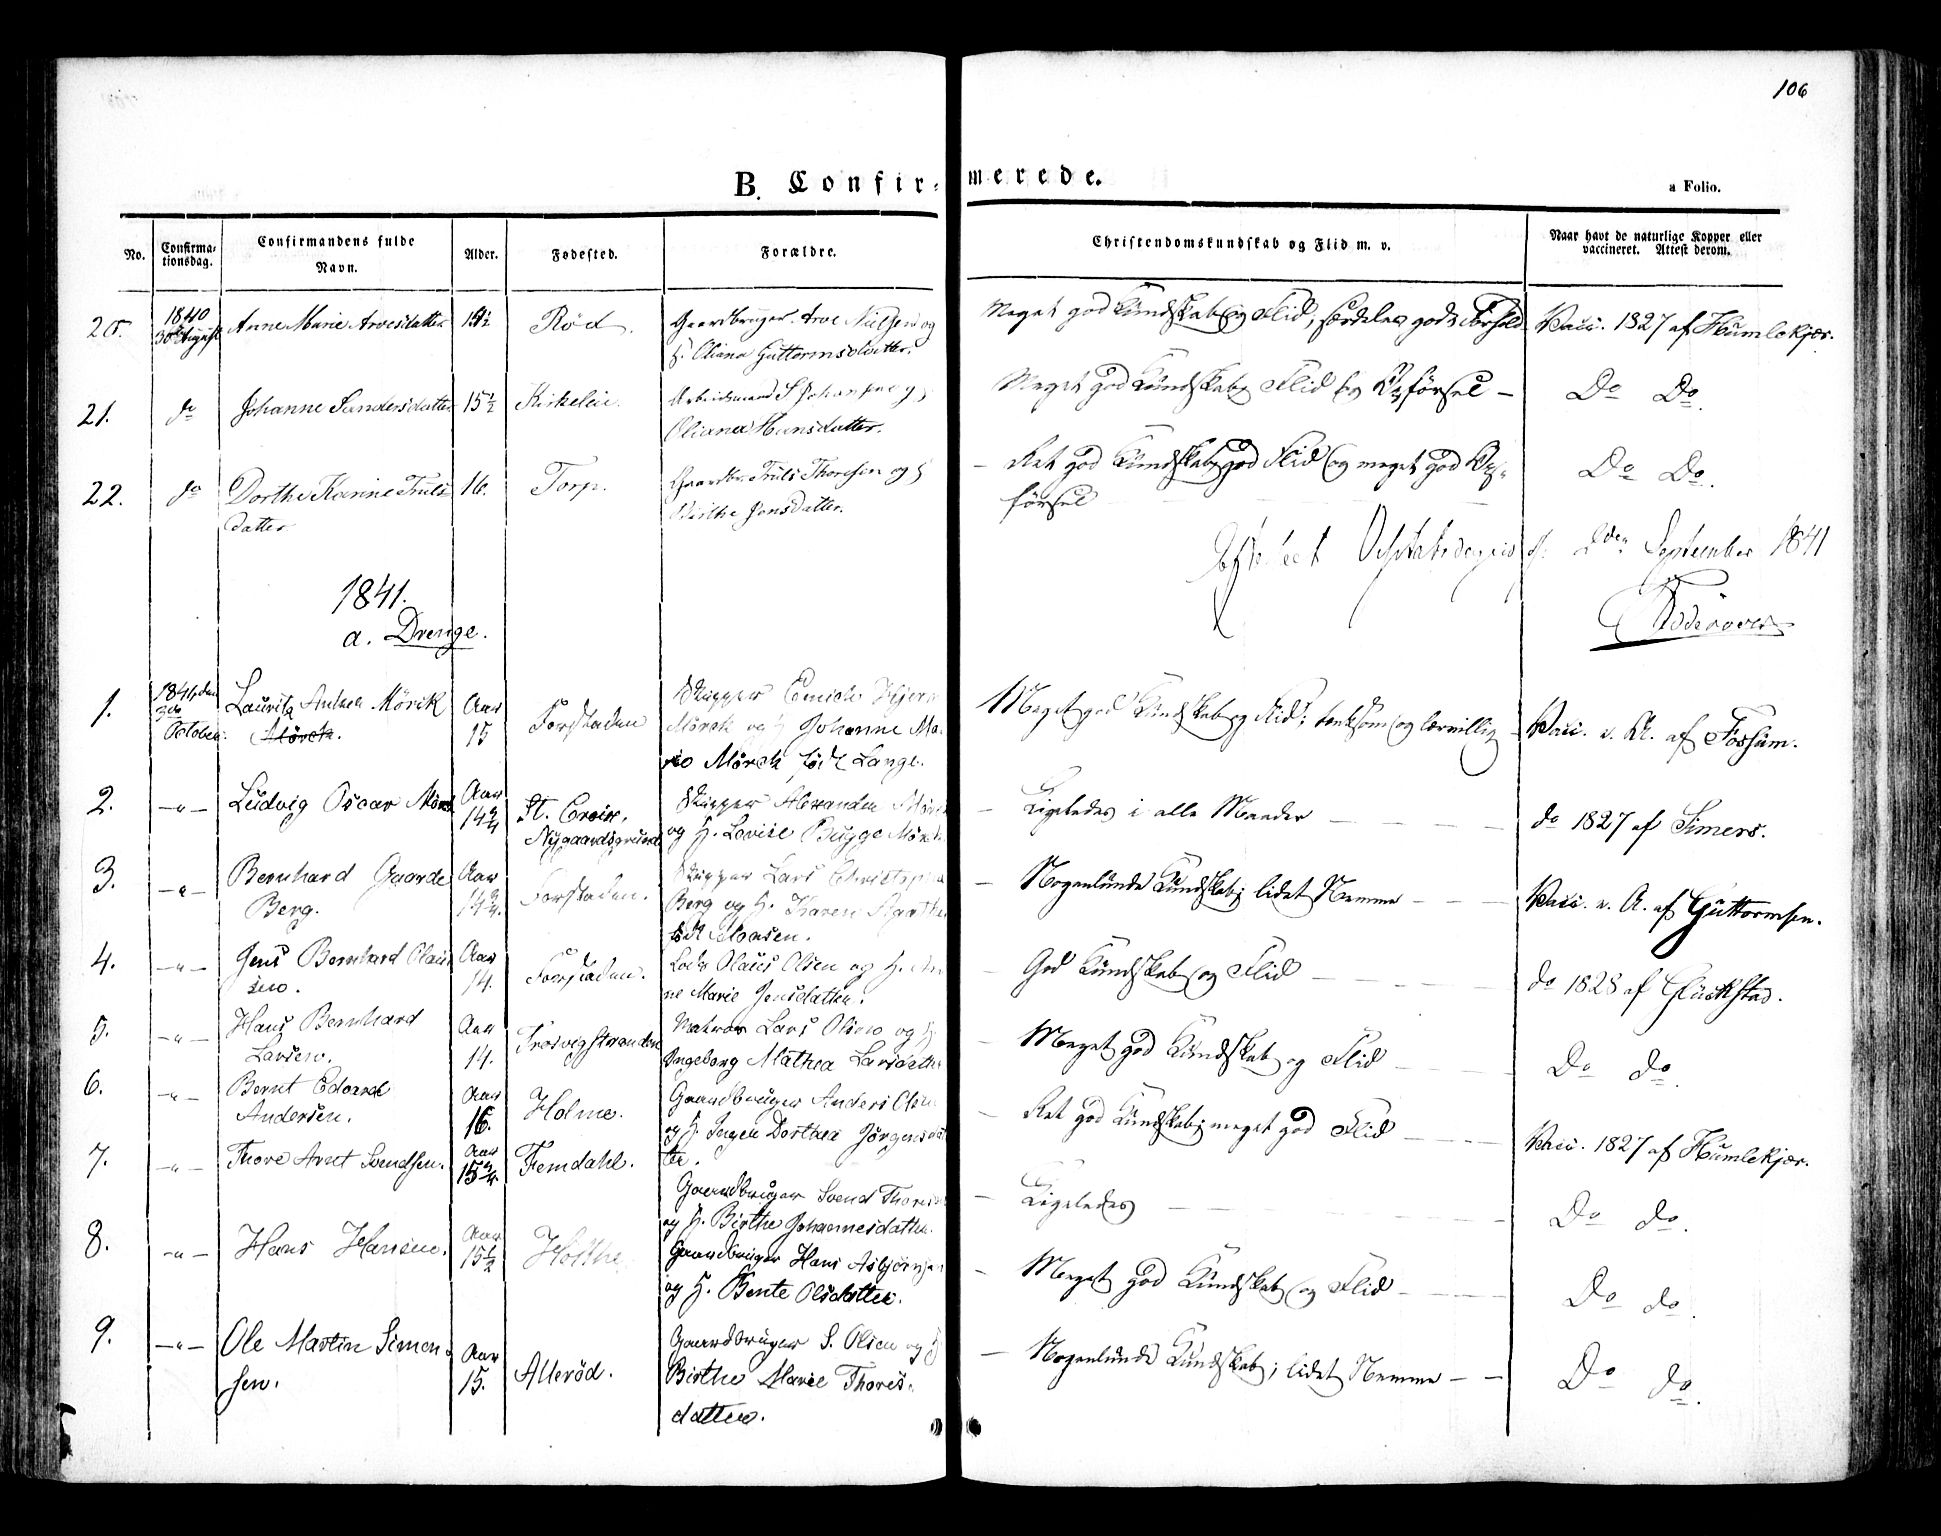 106
B. Confir- merede.
a Folio.
No.
Confirma-
tionsdag.
Confirmandens fulde
Navn.
Alder.
Fødested.
Forældre.
Christendomskundskab og Flid m. v.
Naar havt de naturlige Kopper eller
vaccineret. Attest derom.
20. 1840 30 August Anne Marie Arvesdatter Röd. Gaardbruger Arve og
H. Oliana Guttormsdatter.
Meget god Kundskab og Flid, særdeles godt Forhold
Vacc. 1827 af Humlekjær.
21. do Johanne Sandersdatter 15½ Kirkeleie Arbeidsmand S. Johannes
Oliana Hansdatter.
Meget god Kundskab, Flid og Opförsel –
Do Do.
22. do Dorthe Karine Truls 16. Torp. Gaardbr. Truls Thoresen og H
datter Birthe Jonsdatter.
– Ret god Kundskab, god Flid og meget god Op-
försel
Do Do.
2den September 1841
1841.
a. Drenge.
1. 1841 den 3die October. Lauritz Anthon Mörck Aar 15 Forstaden
Mörch.
Skipper Hjern
Mörch og H Johanne Ma-
rie Mörch föd Lange.
Meget god Kundskab og Flid; tænksom og lærvillig
Vacc. v. A. af Fossum.
2. –"– Ludvig Oscar Mörch Aar 14¾ St. Croix.
Nygaardsgrund
Skipper Alexander Mörch
og H. Lovise Bugge Mörch
– Ligeledes i alle Maader
do 1827 af Simers.
3. –"– Bernhard Gaarder Aar 14¾. Forstaden.
Berg.
Skipper Lars Christopher
Berg og H. Karen Agathe
föd Moasen.
– Nogenlunde Kundskab; lidet Nemme
Vacc. v. A. af Guttormsen.
4. –"– Jens Bernhard Olaus Aar 14. Forstaden.
sen.
Lods Olaus Olsen og H. An
ne Marie Jensdatter.
– God Kundskab og Flid
do 1828 af Glückstad.
5. –"– Hans Bernhard Aar 14. Trosvigstranden
Larsen.
Matros Lars Olsen og H
Ingeborg Mathea Larsdatter
– Meget god Kundskab og Flid
Do do.
6. –"– Bernt Edvard Aar 16. Holme.
Andersen.
Gaardbruger Anders Olsen
og H. Ingen Dorthea Jörgensdat
ter.
– Ret god Kundskab; meget god Flid
Vacc. 1827 af Humlekjær.
7. –"– Thore Arnt Svendsen. Aar 15¾ Femdahl.
Gaardbruger Svend Thoresen
og H. Birthe Johannesdatter.
– Ligeledes
Do do.
8. –"– Hans Hansen. Aar 15½ Holthe
Gaardbruger Hans Asbjörnsen
og H. Bente Olsdatter.
– Meget god Kundskab og Flid
Do do.
9. –"– Ole Martin Simon- Aar 15. Alleröd.
sen.
Gaardbruger S. Olsen og H
Birthe Marie Thores-
datter.
– Nogenlunde Kundskab; lidet Nemme – –
Do do.